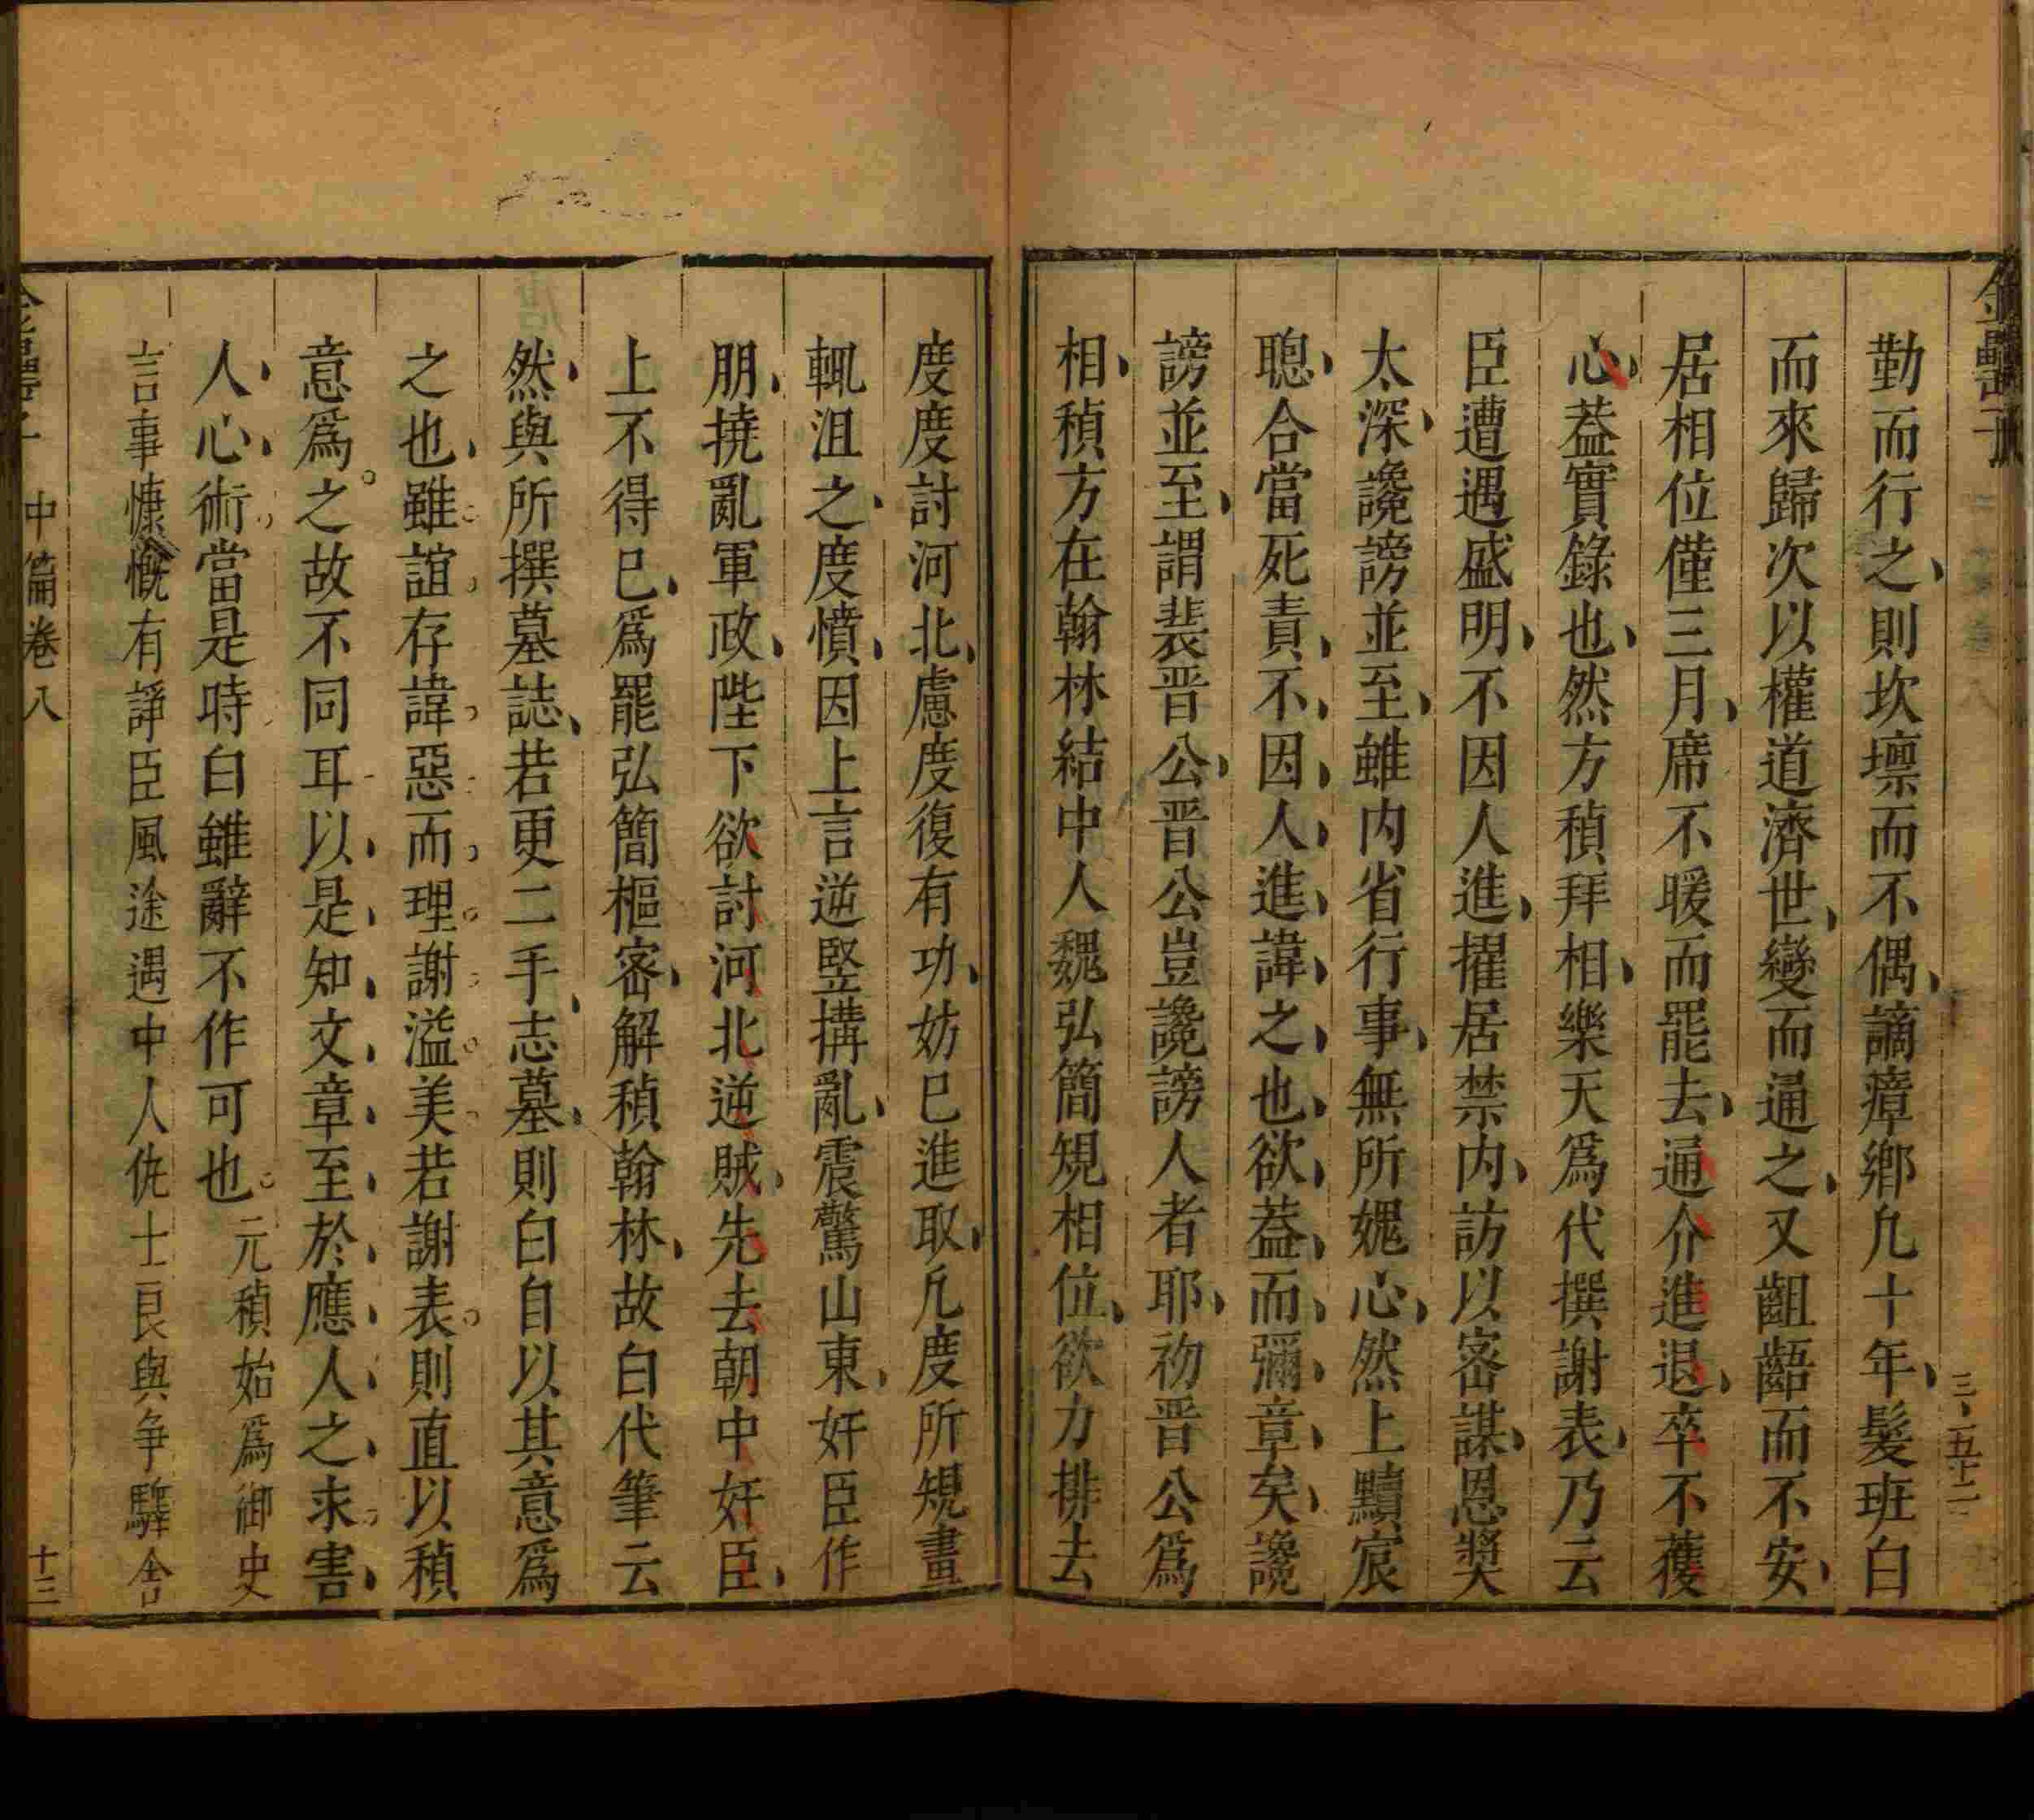 金罍子
三、五十二
勤而行之、則坎壈而不偶、謫瘴鄉凡十年、髮班白
而來歸次以權道濟世、變而通之、又齟齬而不安、
居相位僅三月、席不暖而罷去、通介進退、卒不獲
心、葢實錄也、然方稹拜相、樂天爲代撰謝表、乃云
臣遭遇盛明、不因人進、擢居禁内、訪以密謀、恩奨
太深、讒謗並至、雖内省行事、無所媿心、然上黷宸
聰、合當死責、不、因、人、進、諱、之、也、欲、葢、而、彌、章、矣、讒
謗並至、謂裴晋公、晋公豈讒謗人者耶、初晋公爲
相、稹方在翰林結中人魏弘簡規相位、欲力排去
度度討河北、慮度復有功、妨巳進取、凡度所規畫
輒沮之、度憤、因上言逆竪搆亂、震驚山東、奸臣作
朋、撓亂軍政、陛下欲討河北逆賊、先去朝中奸臣、
上不得已、爲罷弘簡樞密、解稹翰林、故白代筆云
然、與所撰墓誌、若更二手、志墓、則白自以其意爲
之也、雖誼存諱惡而理謝溢美若謝表。則直以稹
意爲。之故不同耳以、是、知、文、章、至、於、應、人、之、求、害、
人、心、術當是時白雖辭不作可也 元稹始爲御史
言事慷慨有諍臣風途遇中人仇士良與争驛舍
金罍子 中篇卷八 十三